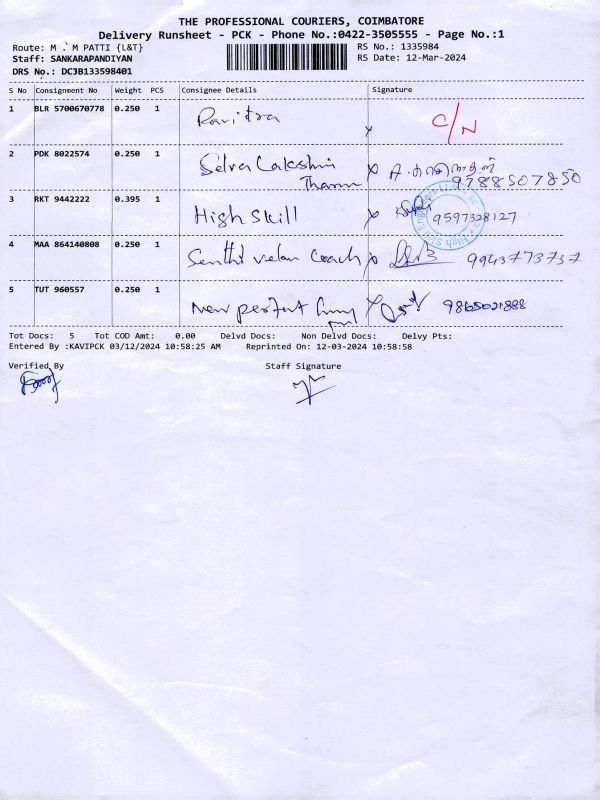 THE PROFESSIONAL COURIERS, COIMBATORE
Delivery Runsheet - PCK - Phone No.:0422-3505555 - Page No.:1
Route: M . M PATTI {L&T}
RS No.: 1335984
Staff: SANKARAPANDIYAN
RS Date: 12-Mar-2024
DRS No.: DCJB133598401
S No Consignment No Weight PCS Consignee Details Signature
1 BLR 5700670778 0.250 1 Pavitra x C/N
2 PDK 8022574 0.250 1 Selva Lakshmi x
9788507850
3 RKT 9442222 0.395 1 High Skill x 9597328127
4 MAA 864140808 0.250 1 Senthil velan Coach x 9943773737
5 TUT 960557 0.250 1 New perfect x 9865021888
Tot Docs: 5 Tot COD Amt: 0.00 Delvd Docs: Non Delvd Docs: Delvy Pts:
Entered By :KAVIPCK 03/12/2024 10:58:25 AM Reprinted On: 12-03-2024 10:58:58
Verified By Staff Signature